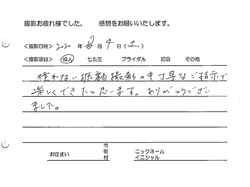 撮影お疲れ様でした。 感想をお願いいたします。
<撮影日時> 2020年 8月 4日 (土)
<撮影種別> 成人 七五三 ブライダル 記念 その他
慣れない振袖撮影の中丁寧なご指示で
楽しくできたと思います。ありがとうござい
ました。
お住まい 市 町 村 ニックネーム イニシャル